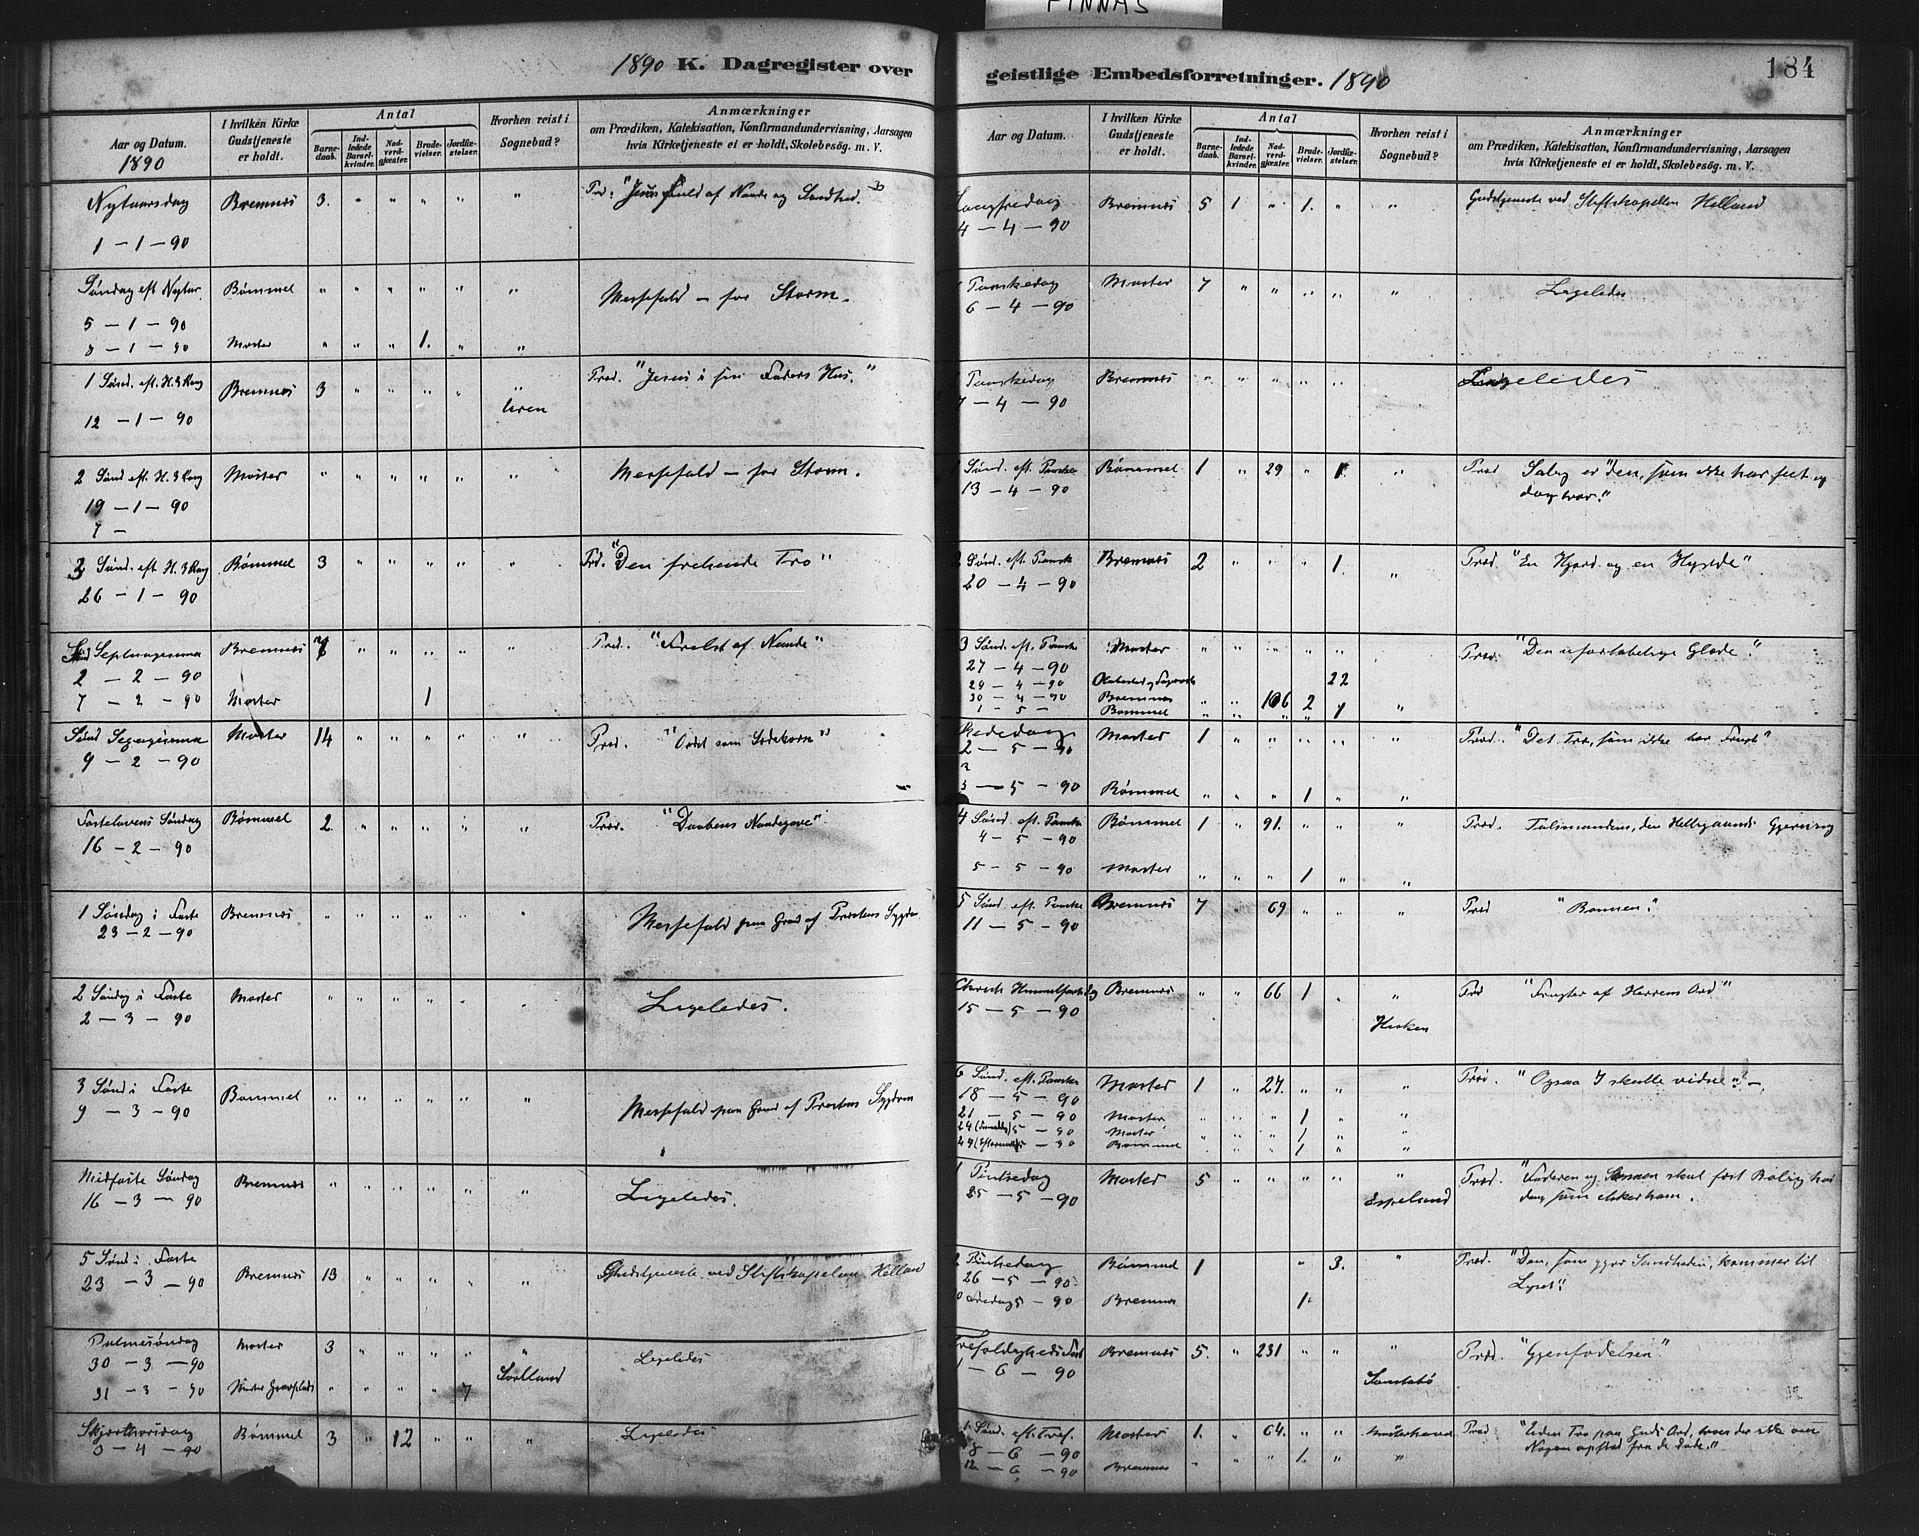 FINNAS
1890 K. Dagregister over
Aar og Datum.
1890
I hvilken Kirke Gudstjeneste er holdt.
Antal
Barnedaab.
Indledede Barselkvinder.
Nadverdgjæster.
Brudevielser.
Jordfæstelser.
Hvorhen reist i Sognebud?
Anmærkninger
om Prædiken, Katekisation, Konfirmandundervisning, Aarsagen
hvis Kirketjeneste ei er holdt, Skolebesøg. m. V.
Nytaarsdag Bremnes 3. " " " " " Præd. "Jesus Fuld af Naade og Sandhed"
1 – 1 – 90
Søndag eft Nytar Bømmel " " " " " " Messefald – for Storm.
5 – 1 – 90
8 – 1 – 90 Moster " " " 1. " "
1 Sønd. eft. H. 3 Kong Bremnes 3 " " " " " Præd. "Jesus i sin Faders Hus."
12 – 1 – 90 Uren
2 Sønd eft. H. 3 Kong Moster " " " " " " Messefald – for Storm.
19 – 1 – 90
7 –
3 Sønd. eft H. 3 Kong Bømmel 3 " " " " " Præd. "Den frelsende Tro"
26 – 1 – 90
Septuagesima Bremnes " " " " " Præd. "Frelst af Naade"
2 – 2 – 90
7 – 2 – 90 Moster 1
Sønd Sexagesima Moster 14 " " " " " Præd. "Ordet som Sædekorn"
9 – 2 – 90
Fastelavens Søndag Bømmel 2 " " " " " Præd. "Daabens Naadegave"
16 – 2 – 90
1 Søndag i Faste Bremnes " " " " " " Messefald paa Grund af Præstens Sygdom
23 – 2 – 90
2 Søndag i Faste Moster " " " " " " Ligeledes.
2 – 3 – 90
3 Sønd i Faste Bømmel " " " " " " Messefald paa Grund af Præstens Sygdom
9 – 3 – 90
Midfaste Søndag Bremnes " " " " " " Ligeledes.
16 – 3 – 90
5 Sønd i Faste Bremnes 13 " " " " " Gudstjeneste ved Stiftskapelan Helland
23 – 3 – 90
Palmesøndag Moster 3 " " " " " Ligeledes
30 – 3 – 90 Sørlland
31 – 3 – 90 Moster Gravplads " " " " 7
Skjærthorsdag Bømmel 3 " 12 " " " Ligeledes
3 – 4 – 90
geistlige Embedsforretninger. 1890
184
Aar og Datum.
I hvilken Kirke Gudstjeneste er holdt.
Antal
Barnedaab.
Indledede Barselkvinder.
Nadverdgjæster.
Brudevielser.
Jordfæstelser.
Hvorhen reist i Sognebud?
Anmærkninger
om Prædiken, Katekisation, Konfirmandundervisning, Aarsagen
hvis Kirketjeneste ei er holdt, Skolebesøg. m. V.
Langfredag Bremnes 5 1 " 1. " " Gudstjeneste ved Stiftskapellan Helland
4 – 4 – 90
Paaskedag Moster 7 " " " " " Ligeledes
6 – 4 – 90
Paaskedag Bremnes " " " " " " Ligeledes
7 – 4 – 90
1 Sønd. eft. Paaske Bømmel 1 " 29 " 1. " Præd Salig er "den, som ikke har seet og
13 – 4 – 90 dog tror."
2 Sønd. eft. Paaske Bremnes 2 " " " 1. " Præd. "En Hjord og en Hyrde"
20 – 4 – 90
3 Sønd eft. Paaske Moster " " " " " " Præd. "Den uforlabelige Glæde".
27 – 4 – 90
29 – 4 – 90 22
30 – 4 – 90 Bremnes " " 106 2 "
1 – 5 – Bømmel " " " " 1 "
Bededag Moster 1 " " " " " Præd. "Det Tro, som ikke bar Frugt".
2 – 5 – 90
3 – 5 – 90 Bømmel " " " 1 " "
4 Sønd. eft. Paaske Bømmel 1 " 91. " " " Præd. Talsmandens, den Helligaands Gjerning
4 – 5 – 90
5 – 5 – 90 Moster " " " 1 " "
5 Sønd. eft. Paaske Bremnes 7 " 69 " " " Præd "Bønnen".
11 – 5 – 90
Christi Himmelfartsdag Bremnes " " 66 1 " " Præd "Frugter af Herrens Ord"
15 – 5 – 90 Hisken
6 Sønd. eft. Paaske Moster 1 " 27. " " " Præd. "Ogsaa I skulle vidne" –
18 – 5 – 90
21 – 5 – 90 Moster " " " 1 " "
24 (Formiddag) 5 – 90 Moster " " " 1 "
24 (Eftermiddag) 5 – 90 Bømmel 1 " "
1 Pintsedag Moster 5 " " " " " Præd. "Faderen og Sønnen skal fæst Bolig hos
25 – 5 – 90 Espeland den, som elsker ham.
2 Pintsedag Bømmel 1 " 3. " Præd. "Den, som gjør Sandheden, kommer til
26 – 5 – 90 Lyset".
Fredag 5 – 90 Bremnes 1.
Trefoldigheds Fest Bremnes 5. " 231 " " " Præd. "Gjenfødelsen".
1 – 6 – 90 Sønstabø
1 Sønd. eft. Tref. Moster 1. " 64. " " Præd "Uden Tro paa Guds Ord, troer de ikke om
8 – 6 – 90 Nogen opstod fra de døde."
12 – 6 – 90 Bremnes " " " 1. " "